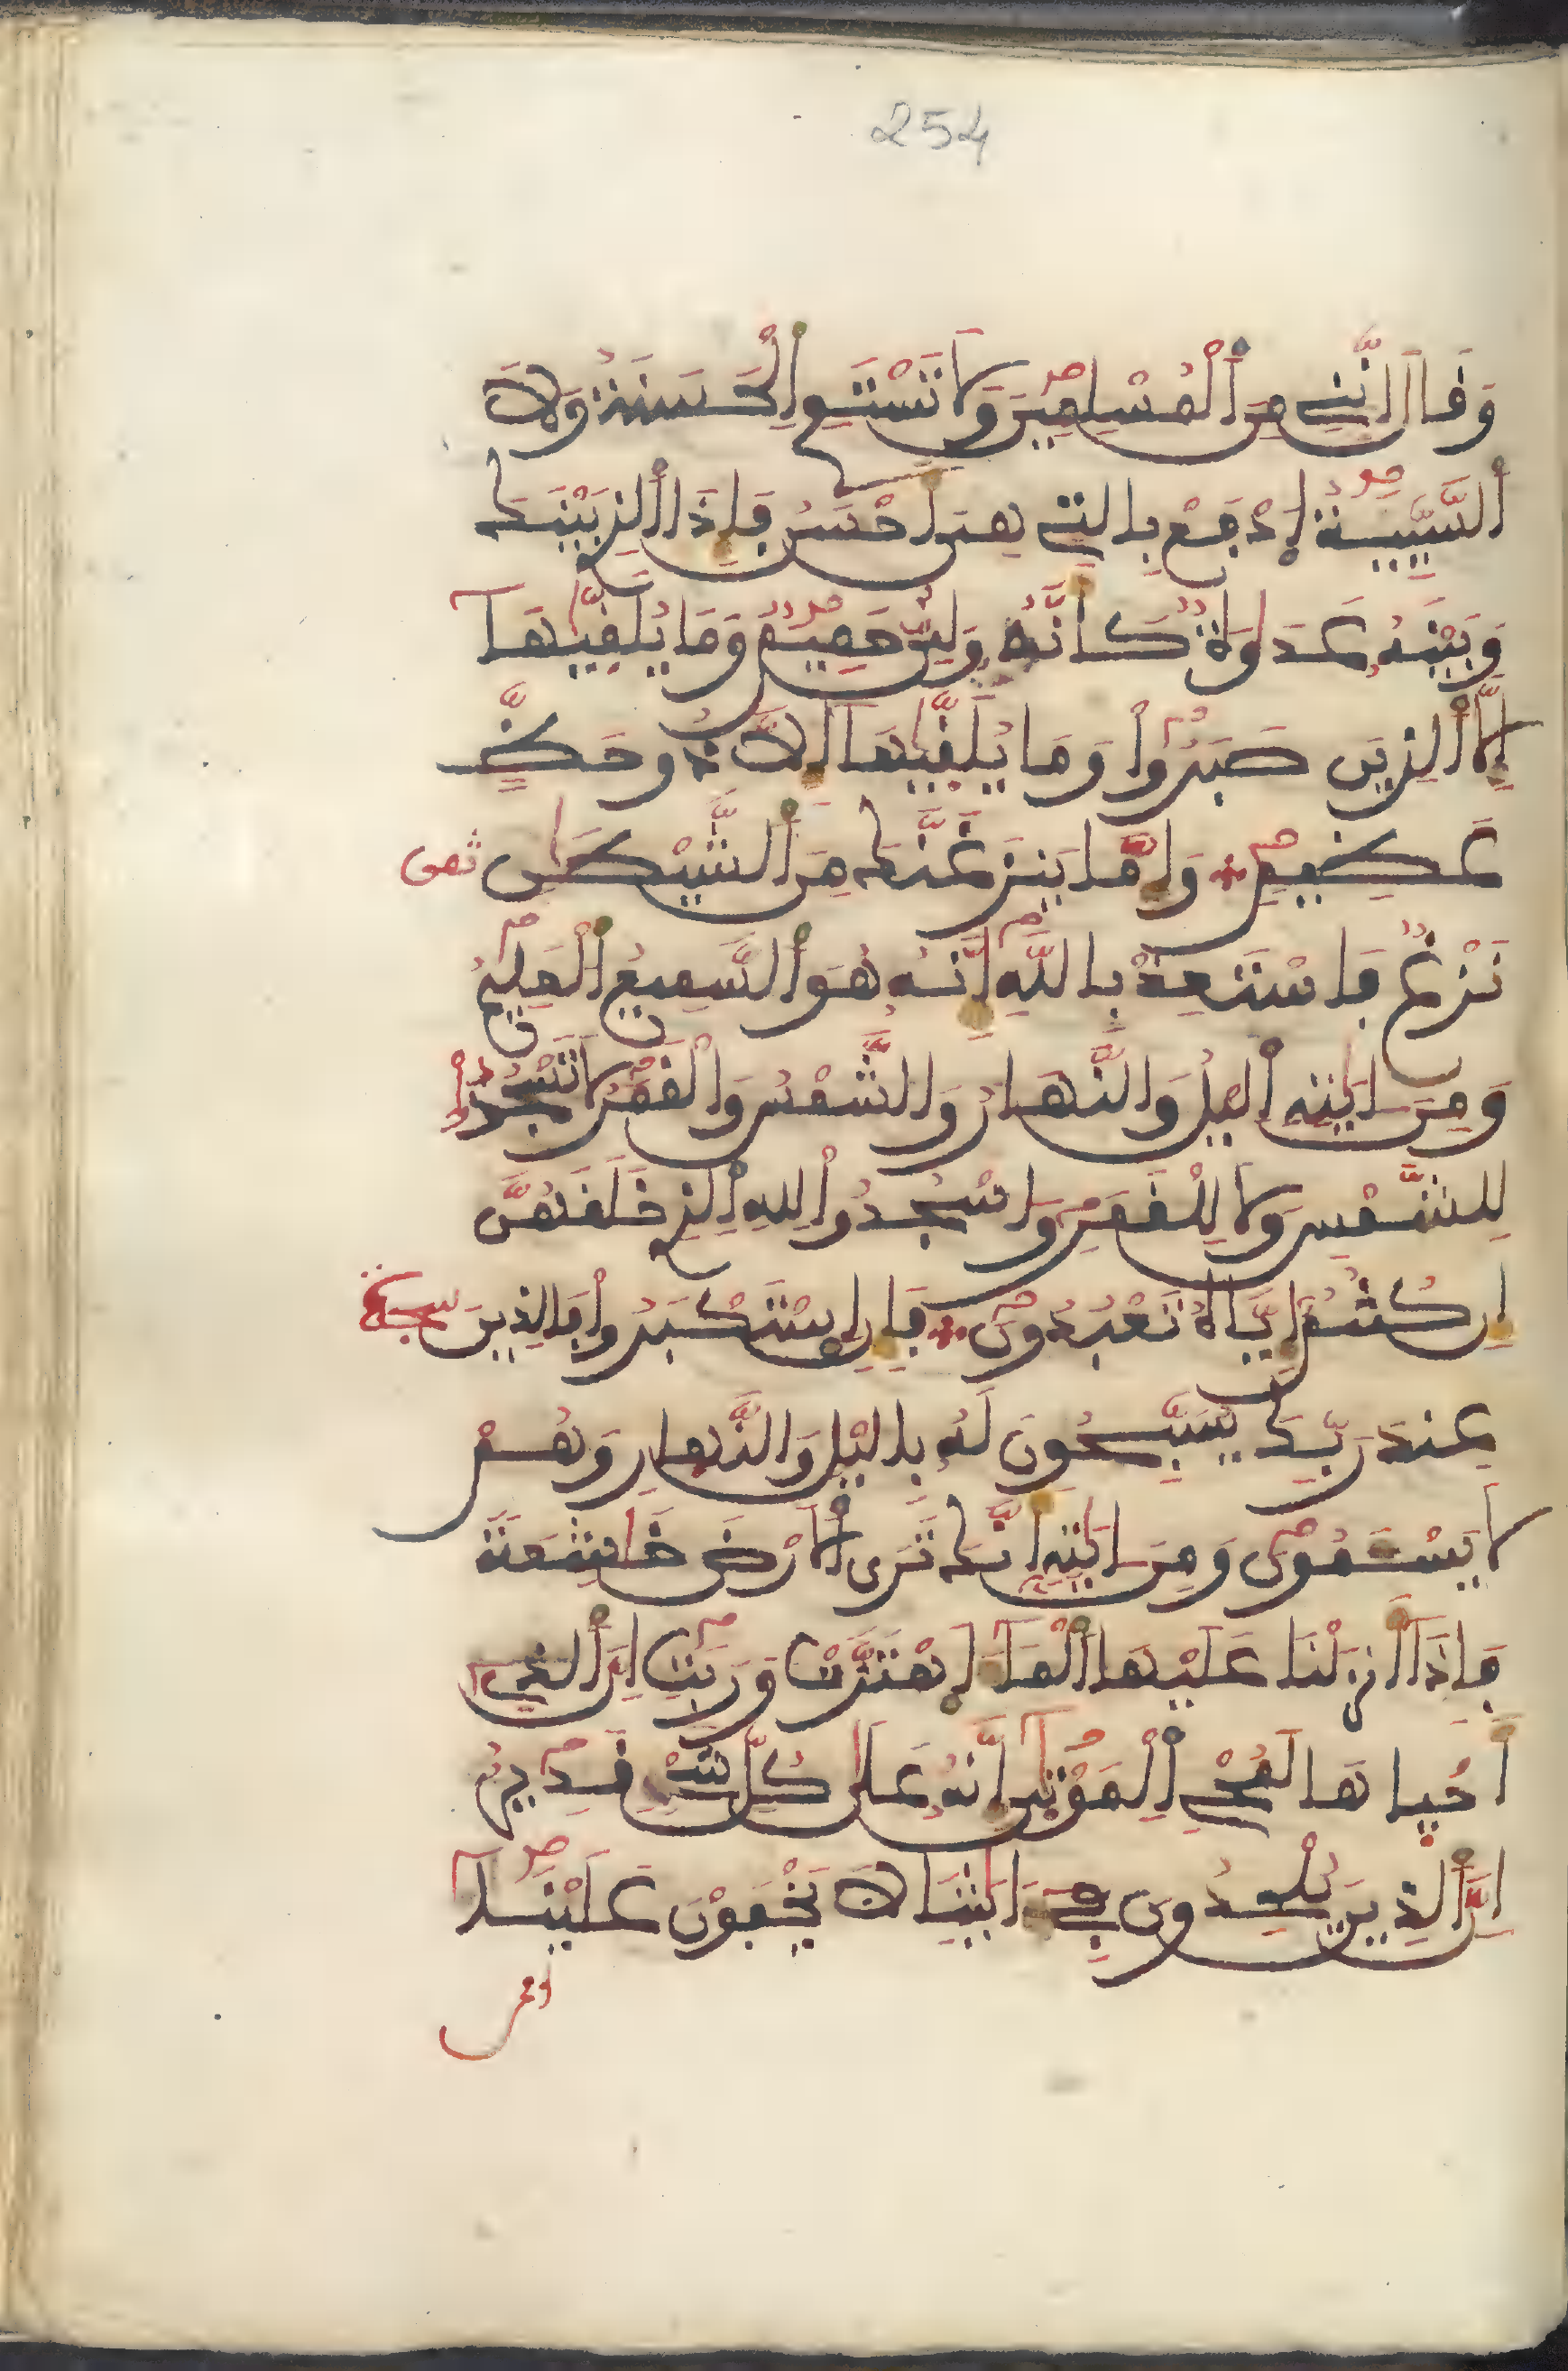 254
وَقَالَ إِنَّنِے مِنَ ٱلْمُسْلِمِينَ وَلَا تَسْتَوِے ٱلْحَسَنَةُ وَلَا
ٱلسَّيِّئَةُ ٱِدْفَعْ بِالتِے هِىَ أَحْسَنُ فَإِذَا ٱلذِے بَيْنَكَ
وَبَيْنَهُۥ عَدَٰوَةٌ كَأَنَّهُۥ وَلِىٌّ حَمِيمٌ وَمَا يُلَقَّيٰهَآ
إِلَّا ٱلذِينَ صَبَرُوا۟ وَمَا يُلَقَّيٰهَآ إِلَّا ذُو حَظٍّ
عَظِيمٍ وَإِمَّا يَنزَغَنَّكَ مِنَ ٱلشَّيْطَٰنِ ثمن
نَزْغٌ فَاسْتَعِذْ بِاللَّهِ إِنَّهُۥ هُوَ ٱلسَّمِيعُ ٱلْعَلِيمُ
وَمِنَ ءَايَٰتِهِ ٱليْلُ وَالنَّهَارُ وَالشَّمْسُ وَالْقَمَرُ لَا تَسْجُدُوا۟
لِلشَّمْسِ وَلَا لِلْقَمَرِ وَاسْجُدُوا۟ لِلهِ ٱلذِے خَلَقَهُنَّ
إِن كُنتُمْ إِيَّاهُ تَعْبُدُونَ فَإِنِ ٱِسْتَكْبَرُوا۟ فَالذِينَ سجدة
عِندَ رَبِّكَ يُسَبِّحُونَ لَهُۥ بِاليْلِ وَالنَّهَارِ وَهُمْ
لَا يَسْـَٔمُونَ وَمِنَ ءَايَٰتِهِۦٓ أَنَّكَ تَرَى ٱلَارْضَ خَٰشِعَةً
فَإِذَآ أَنزَلْنَا عَلَيْهَا ٱلْمَآءَ ٱَهْتَزَّتْ وَرَبَتِ اِنَّ ٱلذِےٓ
أَحْياهَا لَمُحْےِ ٱلْمَوْتَىٰٓ إِنَّهُۥ عَلَىٰ كُلِّ شَےْءٍ قَدِيرٌ
إِنَّ ٱلذِينَ يُلْحِدُونَ فِےٓ ءَايَٰتِنَا لَا يَخْفَوْنَ عَلَيْنَآ
أفمن